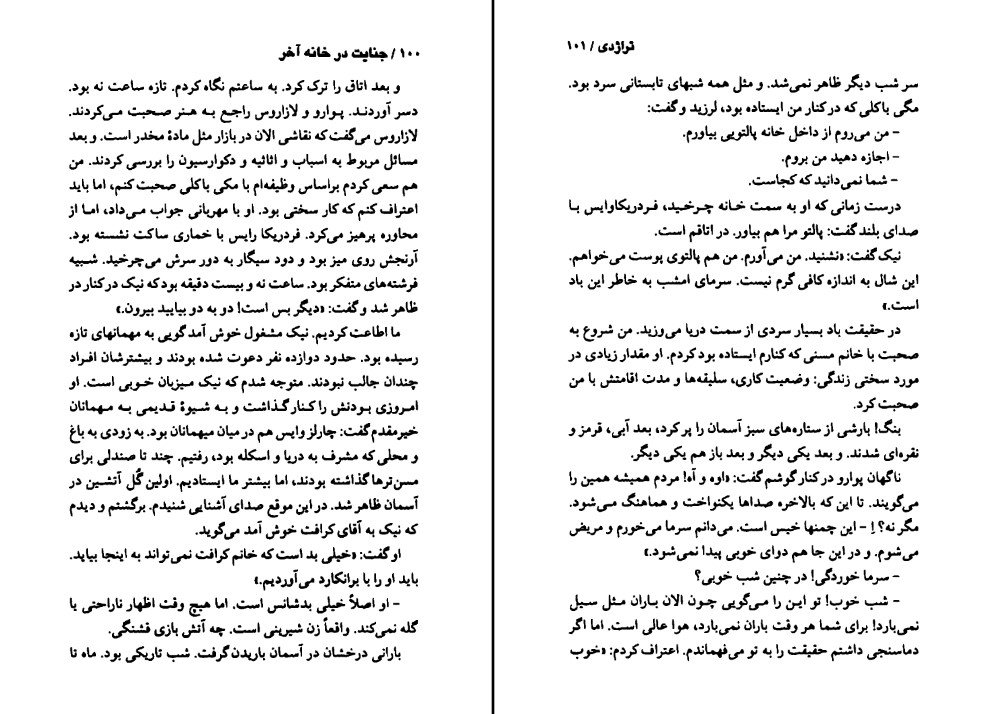 ۱۰۰ / جنایت در خانه آخر
و بعد اتاق را ترک کرد. به ساعتم نگاه کردم. تازه ساعت نه بود.
دسر آوردند. پوارو و لازاروس راجع به هنر صحبت می‌کردند.
لازاروس می‌گفت که نقاشی الان در بازار مثل مادهٔ مخدر است. و بعد
مسائل مربوط به اسباب و اثاثیه و دکوارسیون را بررسی کردند. من
هم سعی کردم براساس وظیفه‌ام با مکی باکلی صحبت کنم، اما باید
اعتراف کنم که کار سختی بود. او با مهربانی جواب می‌داد، امـا از
محاوره پرهیز می‌کرد. فردریکا رایس با خماری ساکت نشسته بود.
آرنجش روی میز بود و دود سیگار به دور سرش می‌چرخید. شـبیه
فرشته‌های متفکر بود. ساعت نه و بیست دقیقه بود که نیک در کنار در
ظاهر شد و گفت: «دیگر بس است! دو به دو بیایید بیرون.»
ما اطاعت کردیم. نیک مشغول خوش آمدگویی به مهمانهای تازه
رسیده بود. حدود دوازده نفر دعوت شده بودند و بیشترشان افـراد
چندان جالب نبودند. متوجه شدم که نیک مـیزبان خـوبی است. او
امـروزی بـودنش را کـنار گـذاشت و بـه شـیوهٔ قـدیمی بـه مـهمانان
خیرمقدم گفت: چارلز وایس هم در میان میهمانان بود. به زودی به باغ
و محلی که مشرف به دریا و اسکله بود، رفتیم. چند تا صندلی برای
مسن‌ترها گذاشته بودند، اما بیشتر ما ایستادیم. اولین گُل آتشین در
آسمان ظاهر شد. در این موقع صدای آشنایی شنیدم. برگشتم و دیدم
که نیک به آقای کرافت خوش آمد می‌گوید.
او گفت: «خیلی بد است که خانم کرافت نمی‌تواند به اینجا بیاید.
باید او را با برانکارد می‌آوردیم.»
– او اصلاً خیلی بدشانس است. اما هیچ وقت اظهار ناراحتی یا
گله نمی‌کند. واقعاً زن شیرینی است. چه آتش بازی قشنگی.
بارانی درخشان در آسمان باریدن گرفت. شب تاریکی بود. ماه تا
تراژدی / ۱۰۱
سر شب دیگر ظاهر نمی‌شد. و مثل همه شبهای تابستانی سرد بود.
مگی باکلی که در کنار من ایستاده بود، لرزید و گفت:
– من می‌روم از داخل خانه پالتویی بیاورم.
– اجازه دهید من بروم.
– شما نمی‌دانید که کجاست.
درست زمانی که او به سمت خـانه چـرخـید، فـردریکاوایس بـا
صدای بلند گفت: پالتو مرا هم بیاور. در اتاقم است.
نیک گفت: «نشنید. من می‌آورم. من هم پالتوی پوست می‌خواهم.
این شال به اندازه کافی گرم نیست. سرمای امشب به خاطر این باد
است.»
در حقیقت باد بسیار سردی از سمت دریا می‌وزید. من شروع به
صحبت با خانم مسنی که کنارم ایستاده بود کردم. او مقدار زیادی در
مورد سختی زندگی: وضعیت کاری، سلیقه‌ها و مدت اقامتش با من
صحبت کرد.
بنگ! بارشی از ستاره‌های سبز آسمان را پر کرد، بعد آبی، قرمز و
نقره‌ای شدند. و بعد یکی دیگر و بعد باز هم یکی دیگر.
ناگهان پوارو در کنار گوشم گفت: «اوه و آه! مردم همیشه همین را
می‌گویند. تا این که بالاخره صداها یکنواخت و هماهنگ می‌شود.
مگر نه؟ اِ – این چمنها خیس است. می‌دانم سرما می‌خورم و مریض
می‌شوم. و در این جا هم دوای خوبی پیدا نمی‌شود.»
– سرما خوردگی! در چنین شب خوبی؟
– شب خوب! تو ایـن را مـی‌گویی چـون الان بـاران مـثل سـیل
نمی‌بارد! برای شما هر وقت باران نمی‌بارد، هوا عالی است. اما اگر
دماسنجی داشتم حقیقت را به تو می‌فهماندم. اعتراف کردم: «خوب